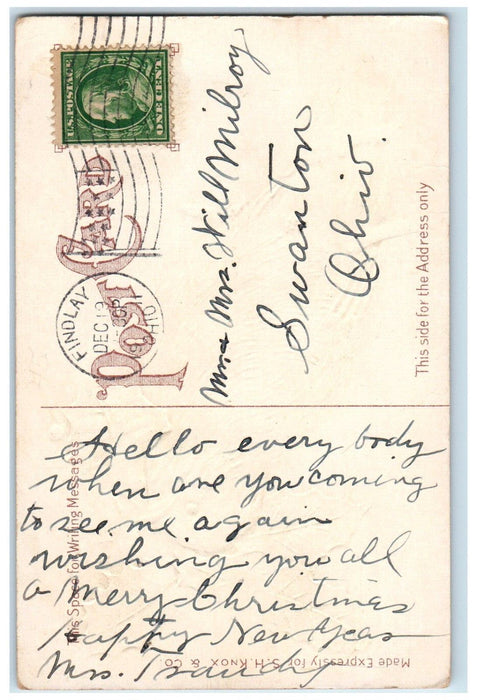 U.S. POSTAGE
ONE CENT
POST CARD
FINDLAY
DEC 19
OHIO
Mrs. Will Milroy
Swanton
Ohio.
This side for the Address only
This Space for Writing Messages
Hello every body
when are you coming
to see me again
wishing you all
a Merry Christmas
Happy New Yeas
Mrs.
Made Expressly for S. H. Knox & Co.